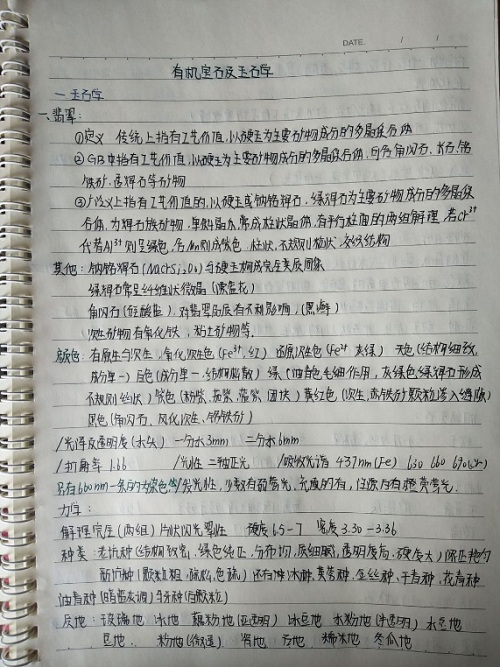 DATE. / /
有机宝石及玉石学
一 玉石学
一、翡翠：
①定义 传统上指有工艺价值，以硬玉为主要矿物成分的多晶集合体
②GB中指有工艺价值，以硬玉为主要矿物成分的多晶集合体，可含角闪石、长石、铬
铁矿、透辉石等矿物
③广义上指有工艺价值的，以硬玉或钠铬辉石，绿辉石为主要矿物成分的多晶集
合体，为辉石族矿物，单斜晶系，常成柱状晶体，有平行柱面的两组解理，若Cr³⁺
代替Al³⁺则呈绿色，含Mn则成紫色，柱状，不规则粒状，交织结构
其他：钠铬辉石(NaCrSi₂O₆)与硬玉构成完全类质同像
绿辉石常呈纤维状微晶（飘蓝花）
角闪石（硅酸盐），对翡翠品质有不利影响，（黑癣）
次生矿物有氧化铁，粘土矿物等.
颜色：有原生与次生，氧化次生色（Fe³⁺，红） 还原次生色（Fe²⁺ 灰绿） 无色（结构细致，
成分单一）白色（成分单一，结构松散） 绿（油青色毛细作用，灰绿色绿辉石形成
不规则丝状）紫色（粉紫、茄紫、蓝紫 团块）黄红色（次生，赤铁矿颗粒渗入缝隙）
黑色（角闪石、风化次生、铬铁矿）
/光泽及透明度（水头） 一分水3mm 二分水6mm
/折射率 1.66 /光性 二轴正光 /吸收光谱 437nm (Fe) 630 660 690(Cr)
/发光性，少数有弱荧光，充胶的有
力学：
解理完全（两组）片状闪光翠性 硬度 6.5-7 密度 3.30-3.36
种类：老坑种（结构致密，绿色纯正，分布均，质细腻，透明度高，硬度大）
新坑种（颗粒粗，疏松，色疏）还有冰种、芙蓉种、金丝种、干青种、花青种
油青种（暗蓝灰调）
质地：玻璃地 冰地 藕粉地（亚透明） 冰豆地 水粉地（半透明） 水豆地
豆地. 粉地（微透） 瓷地 芳地 糯米地 冬瓜地